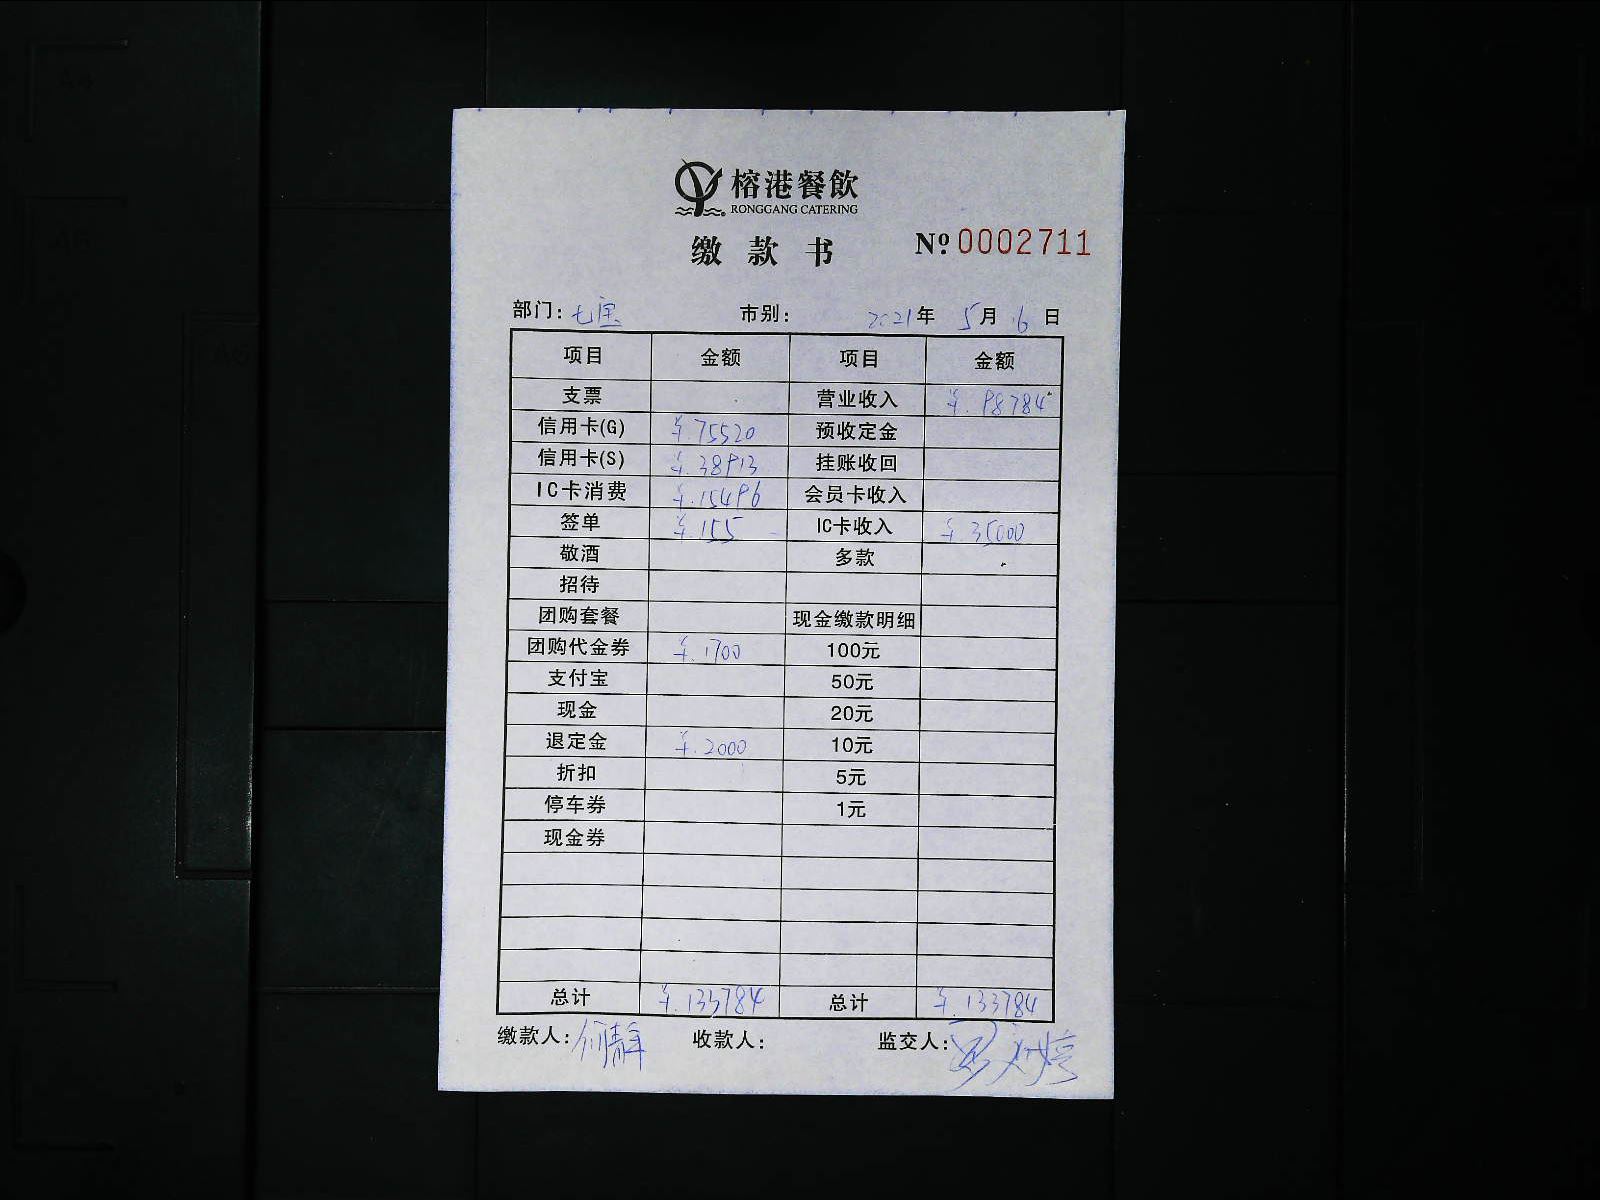 榕港餐飲
RONGGANG CATERING
缴款书 Nº 0002711
部门: 七宝 市别: 2021年 5月 6日
项目 金额 项目 金额
支票 营业收入 ¥.98784
信用卡(G) ¥.75520 预收定金
信用卡(S) ¥.38913 挂账收回
IC卡消费 ¥.15496 会员卡收入
签单 ¥.155 IC卡收入 ¥.35000
敬酒 多款
招待
团购套餐 现金缴款明细
团购代金券 ¥.1700 100元
支付宝 50元
现金 20元
退定金 ¥.2000 10元
折扣 5元
停车券 1元
现金券
总计 ¥.133784 总计 ¥.133784
缴款人: 何静 收款人: 监交人: